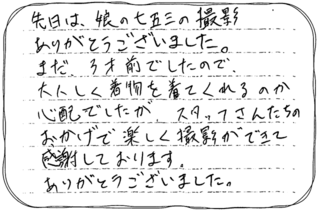 先日は、娘の七五三の撮影
ありがとうございました。
まだ、3才前でしたので、
大人しく着物を着てくれるのか
心配でしたが、スタッフさんたちの
おかげで楽しく撮影ができて
感謝しております。
ありがとうございました。